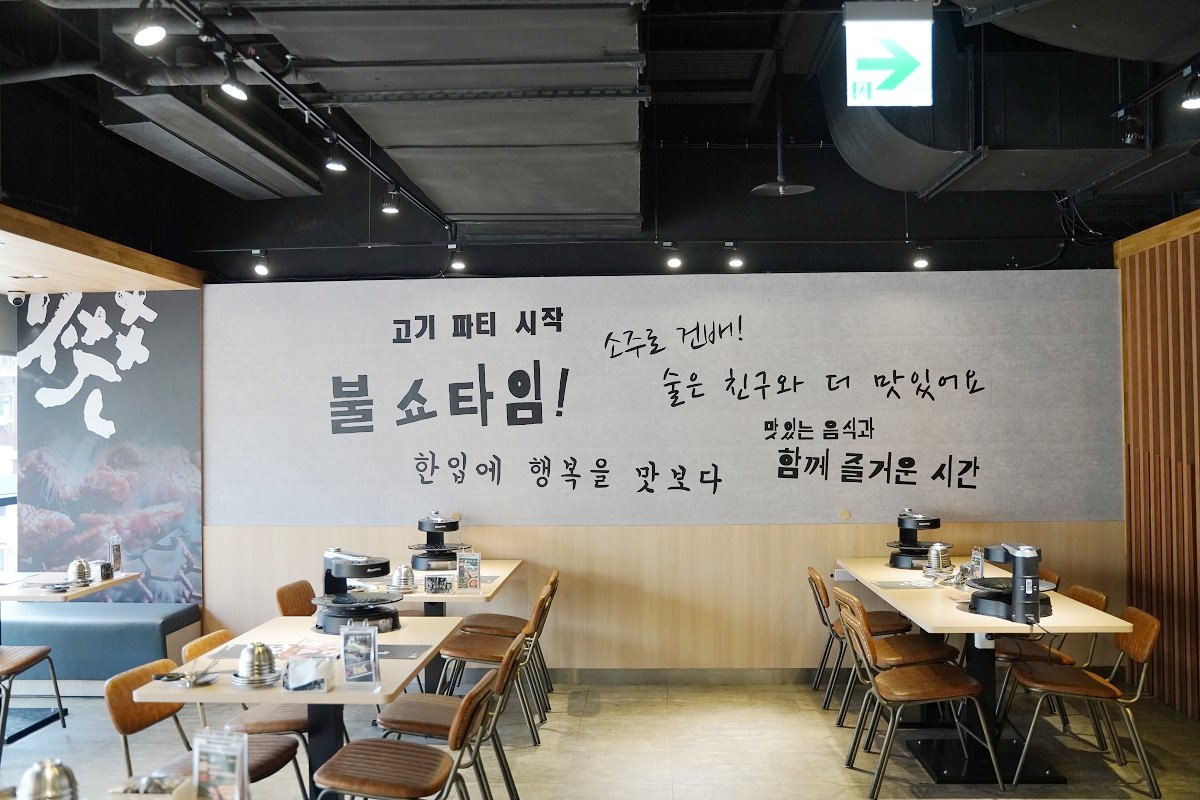 고기 파티 시작
불 쇼타임!
한입에 행복을 맛보다
소주로 건배!
술은 친구와 더 맛있어요
맛있는 음식과
함께 즐거운 시간